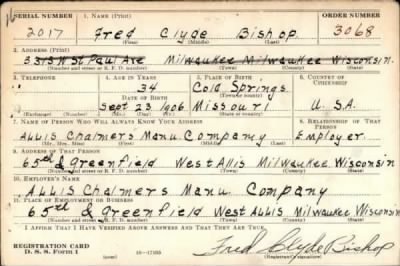 16
SERIAL NUMBER 1. NAME (Print) ORDER NUMBER
2017 Fred Clyde Bishop 3068
(First) (Middle) (Last)
2. ADDRESS (Print)
3315 W St Paul Ave Milwaukee Milwaukee Wisconsin.
(Number and street or R. F. D. number) (Town) (County) (State)
3. TELEPHONE 4. AGE IN YEARS 5. PLACE OF BIRTH 6. COUNTRY OF CITIZENSHIP
34 Cold Springs
DATE OF BIRTH (Town or county)
Sept 23 1906 Missouri U.S.A.
(Exchange) (No.) (Mo.) (Day) (Yr.) (State or country)
7. NAME OF PERSON WHO WILL ALWAYS KNOW YOUR ADDRESS 8. RELATIONSHIP OF THAT PERSON
Allis Chalmers Manu. Company Employer
(Mr., Mrs., Miss) (First) (Middle) (Last)
9. ADDRESS OF THAT PERSON
65th & Greenfield West Allis Milwaukee Wisconsin
(Number and street or R. F. D. number) (Town) (County) (State)
10. EMPLOYER'S NAME
Allis Chalmers Manu. Company
11. PLACE OF EMPLOYMENT OR BUSINESS
65th & Greenfield West Allis Milwaukee Wisconsin
(Number and street or R. F. D. number) (Town) (County) (State)
I AFFIRM THAT I HAVE VERIFIED ABOVE ANSWERS AND THAT THEY ARE TRUE.
REGISTRATION CARD
D. S. S. Form 1 16-17105 Fred Clyde Bishop
(Registrant's signature)